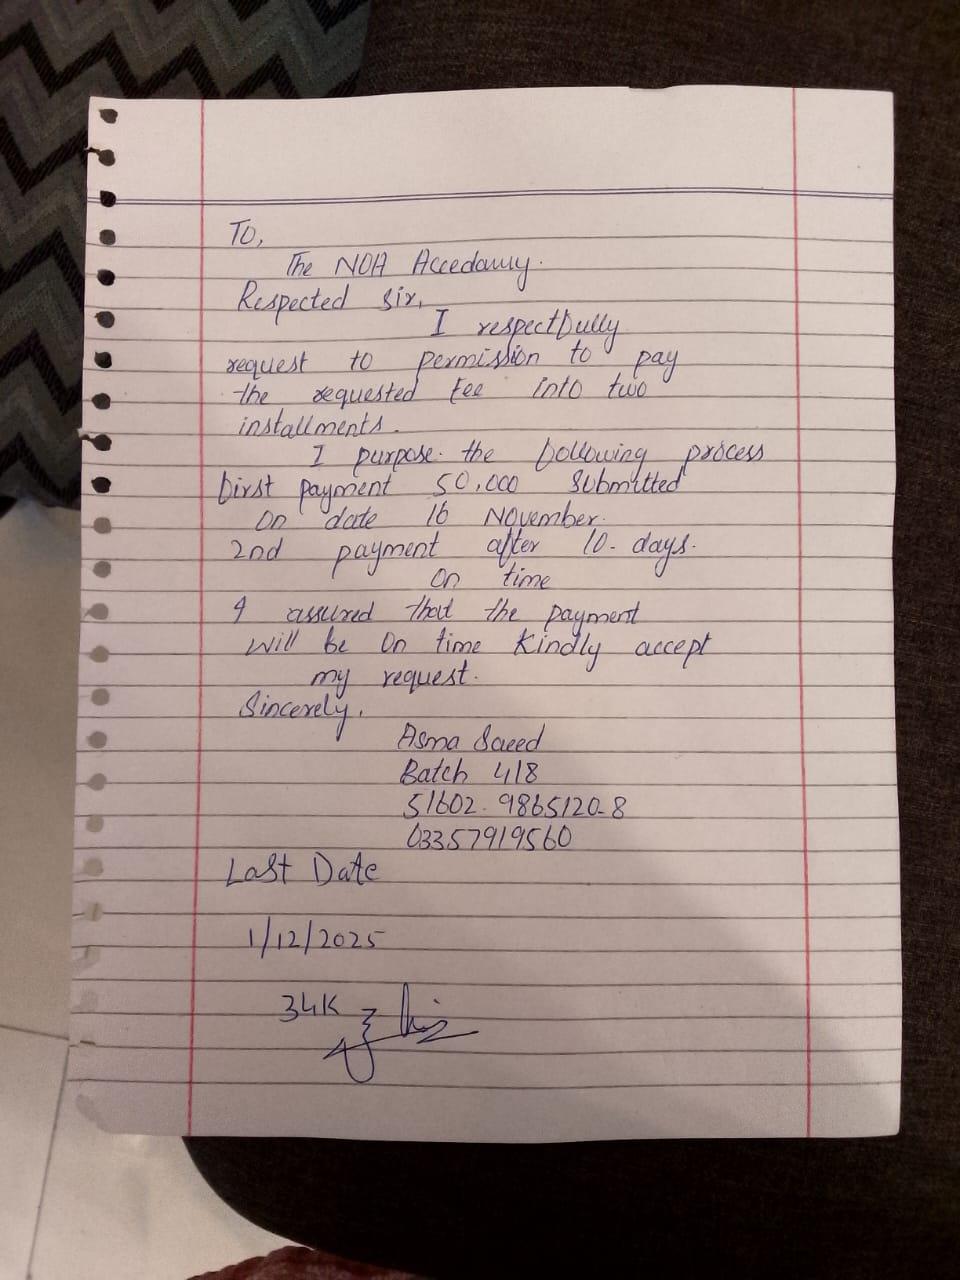 To,
The NOA Accedamy.
Respected Sir,
I respectfully
request to permission to pay
the requested fee into two
installments.
I purpose the following process
first payment 50,000 Submitted
On date 16 November.
2nd payment after 10 days.
On time
I assured that the payment
will be On time Kindly accept
my request.
Sincerely,
Asma Saeed
Batch 418
51602-9865120-8
03357919560
Last Date
1/12/2025
34K